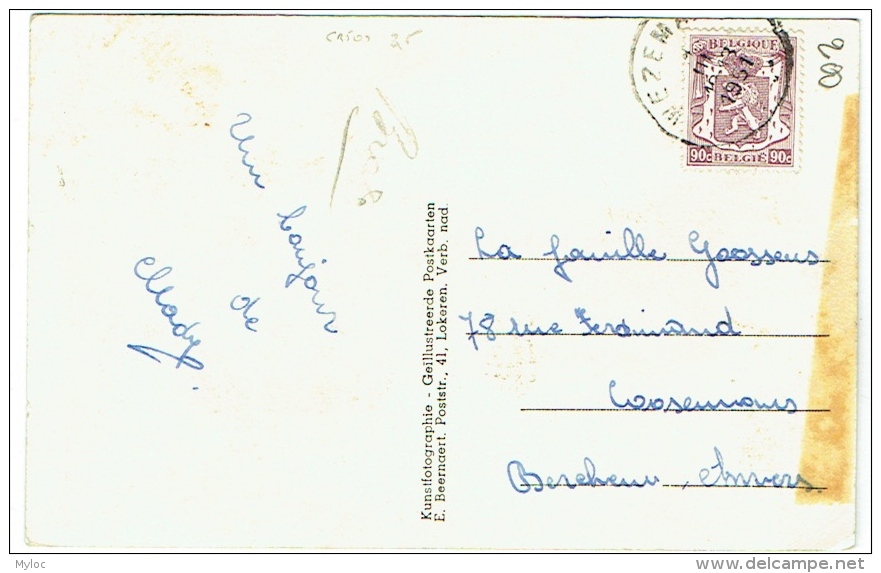 Un bonjour
de
Mady.
Kunstfotographie - Geïllustreerde Postkaarten
E. Beernaert. Poststr., 41, Lokeren. Verb. nad.
BELGIQUE
90c 90c
BELGIË
WEZEM
1951
200
La famille Goossens
78 rue Ferdinand
Coosemans
Berchem Anvers.
Myloc
delcampe.net